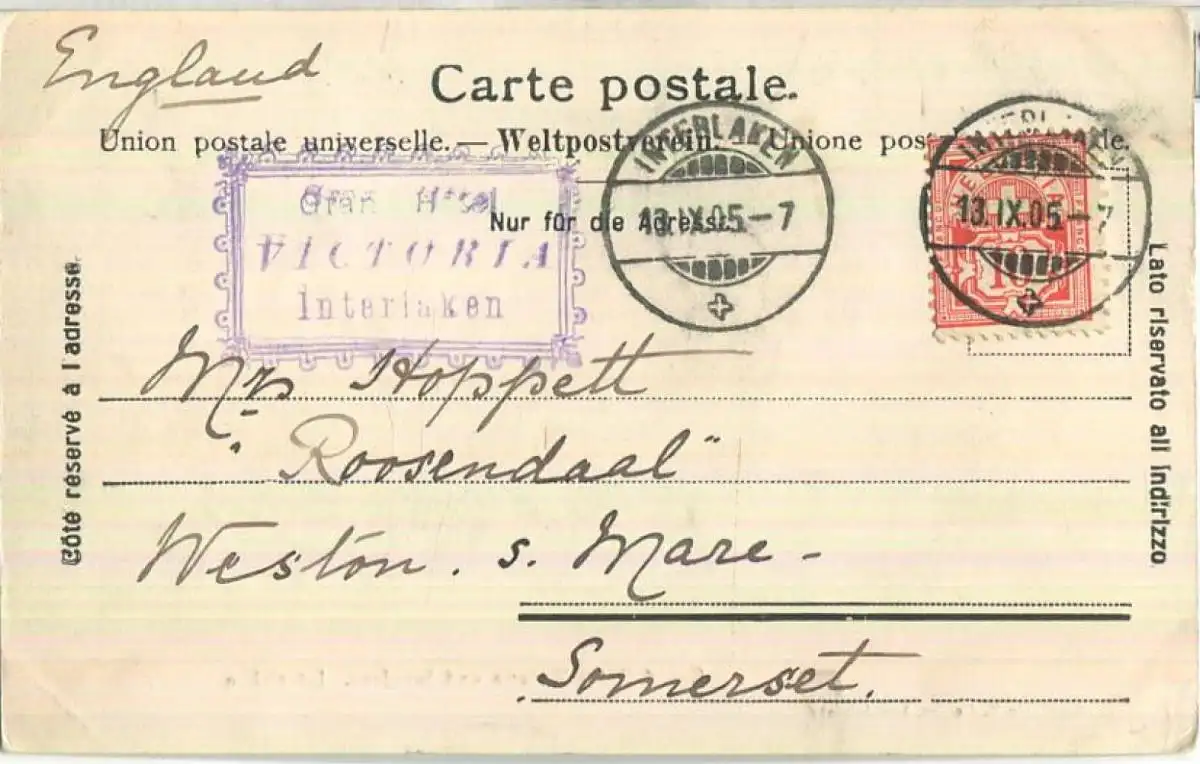 England
Carte postale.
Union postale universelle. — Weltpostverein. — Unione postale
Nur für die Adresse.
Gran Hotel
VICTORIA
Interlaken
INTERLAKEN
13.IX.05–7
INTERLAKEN
13.IX.05–7
10
Côté réservé à l'adresse.
Lato riservato all indirizzo
Mrs Hoppett
"Roosendaal"
Weston. s. Mare -
Somerset.